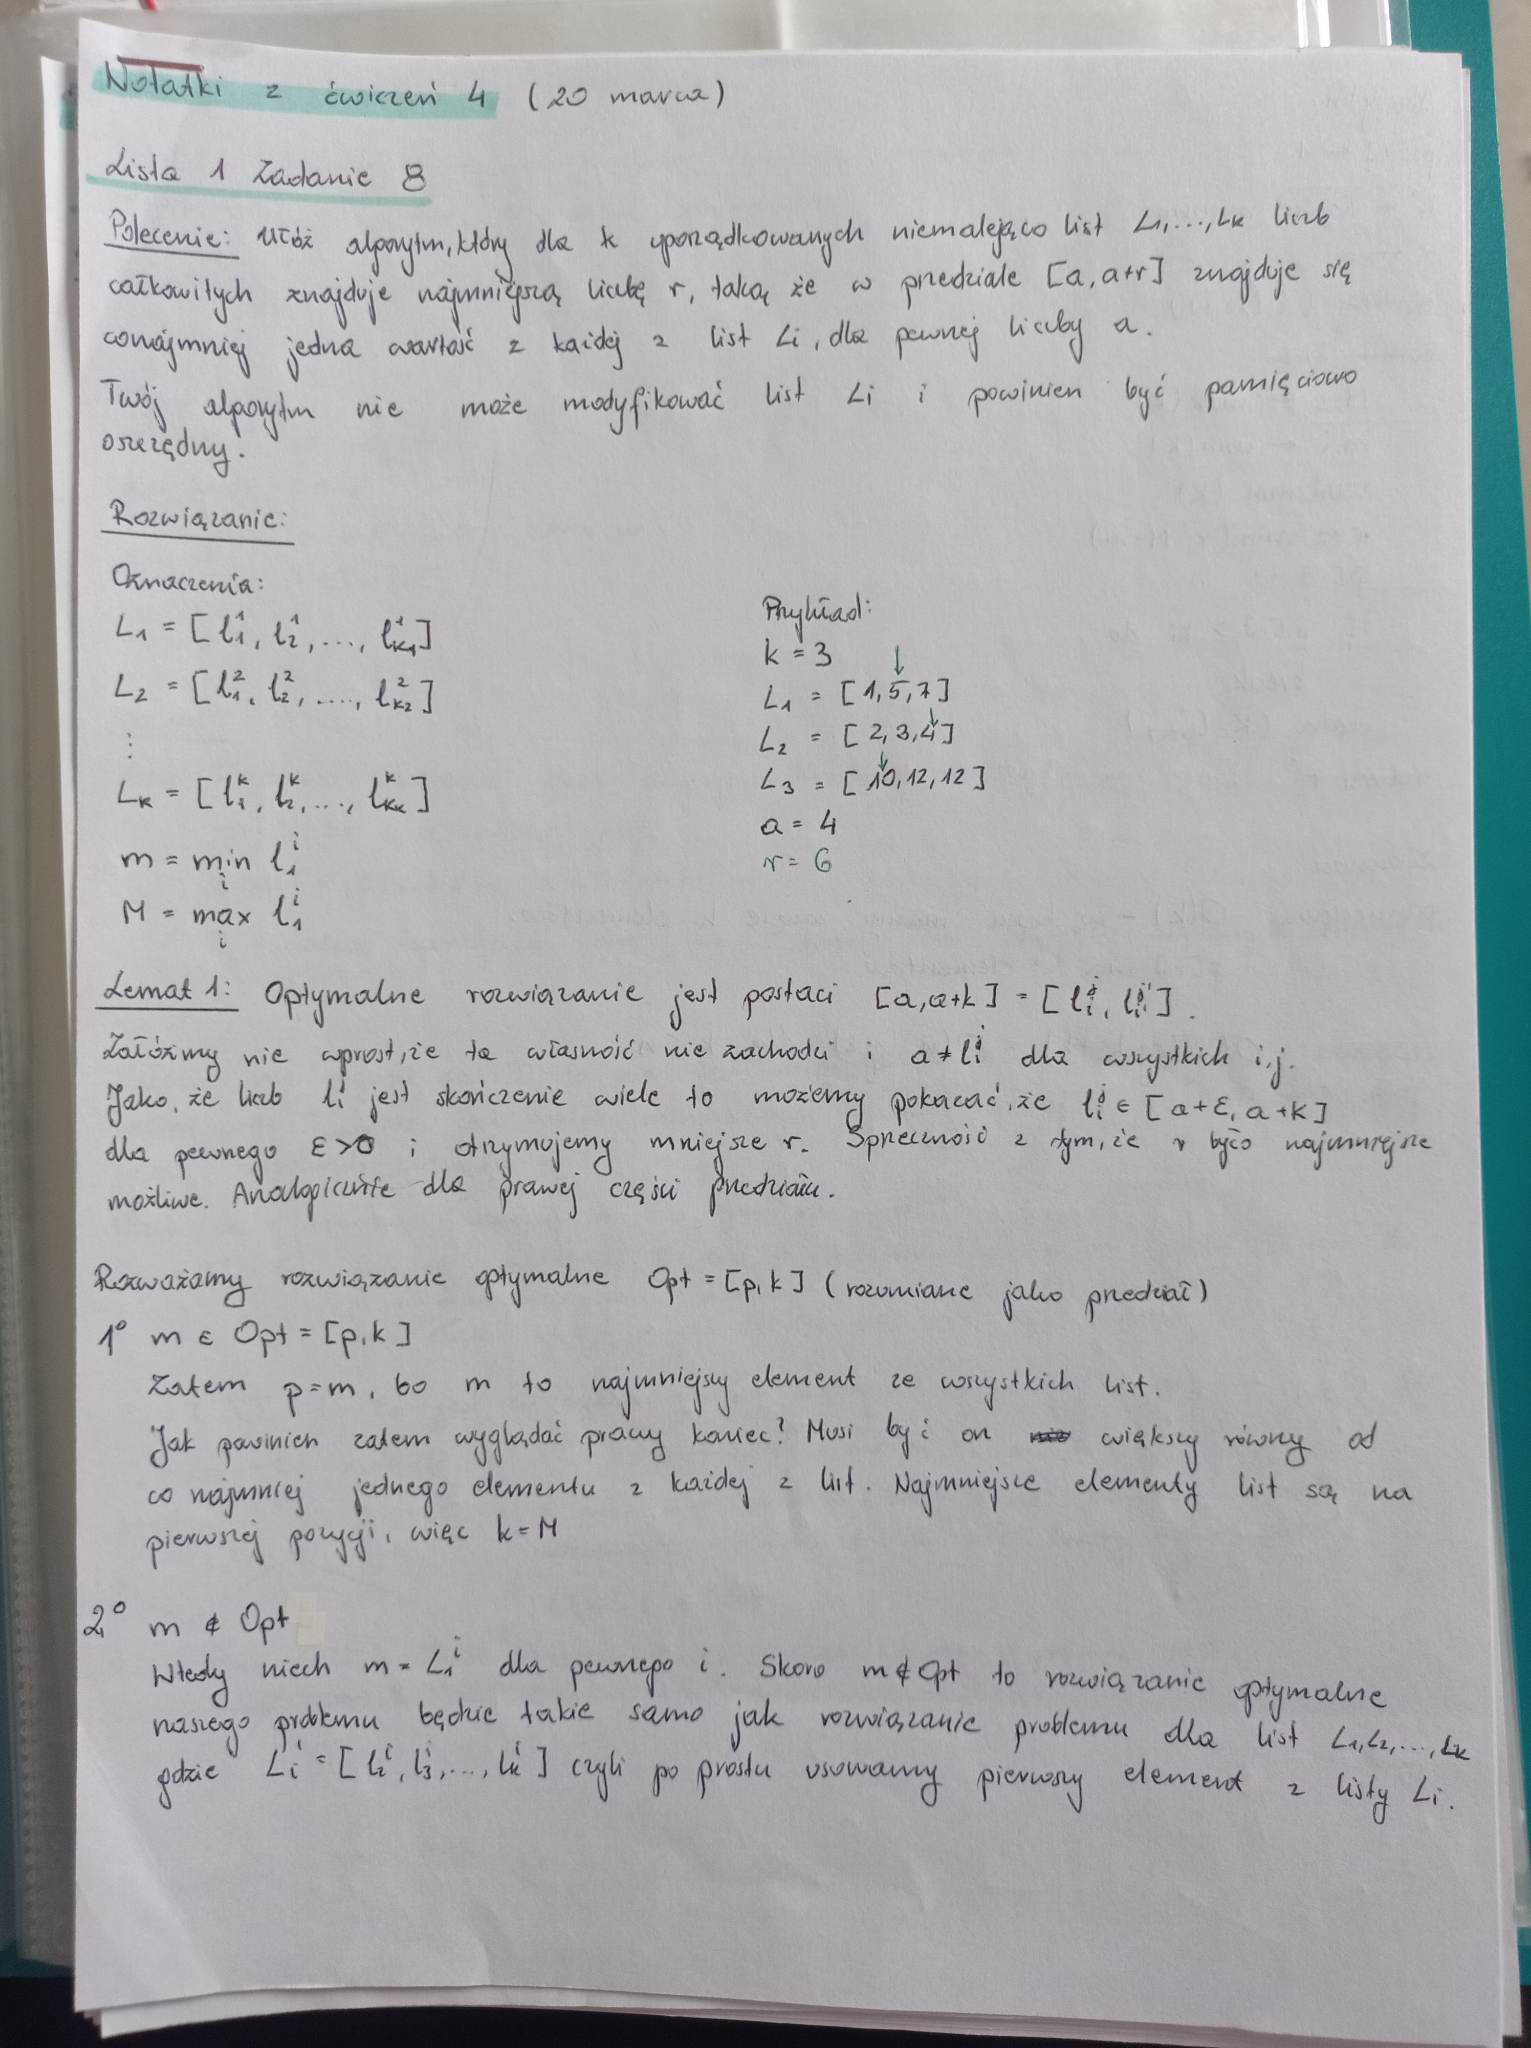 Notatki z ćwiczeń 4 (20 marca)
Lista 1 Zadanie 8
Polecenie: Ułóż algorytm, który dla k uporządkowanych niemalejąco list L₁,...,Lₖ liczb
całkowitych znajduje najmniejszą liczbę r, taką że w przedziale [a, a+r] znajduje się
conajmniej jedna wartość z każdej z list Li, dla pewnej liczby a.
Twój algorytm nie może modyfikować list Li i powinien być pamięciowo
oszczędny.
Rozwiązanie:
Oznaczenia:
L₁ = [l₁¹, l₂¹, ..., l_{k₁}¹]
L₂ = [l₁², l₂², ...., l_{k₂}²]
⋮
Lₖ = [l₁ᵏ, l₂ᵏ, ..., l_{kₖ}ᵏ]
m = min_i l₁ⁱ
M = max_i l₁ⁱ
Przykład:
k = 3
L₁ = [1, 5, 7]
L₂ = [2, 3, 4]
L₃ = [10, 12, 12]
a = 4
r = 6
Lemat 1: Optymalne rozwiązanie jest postaci [a, a+k] = [l_i^j, l_{i'}^{j'}].
Załóżmy nie wprost, że ta własność nie zachodzi i a ≠ l_i^j dla wszystkich i, j.
Jako, że liczb l_i^j jest skończenie wiele to możemy pokazać, że l_i^j ∈ [a+ε, a+k]
dla pewnego ε>0 i otrzymujemy mniejsze r. Sprzeczność z tym, że r było najmniejsze
możliwe. Analogicznie dla prawej części przedziału.
Rozważamy rozwiązanie optymalne Opt = [p, k] (rozumiane jako przedział)
1° m ∈ Opt = [p, k]
Zatem p=m, bo m to najmniejszy element ze wszystkich list.
Jak powinien zatem wyglądać prawy koniec? Musi być on większy równy od
co najmniej jednego elementu z każdej z list. Najmniejsze elementy list są na
pierwszej pozycji, więc k = M
2° m ∉ Opt
Wtedy niech m = L₁ⁱ dla pewnego i. Skoro m ∉ Opt to rozwiązanie optymalne
naszego problemu będzie takie samo jak rozwiązanie problemu dla list L₁, L₂, ..., Lₖ
gdzie Li = [l₂ⁱ, l₃ⁱ, ..., lₖⁱ] czyli po prostu usuwamy pierwszy element z listy Li.